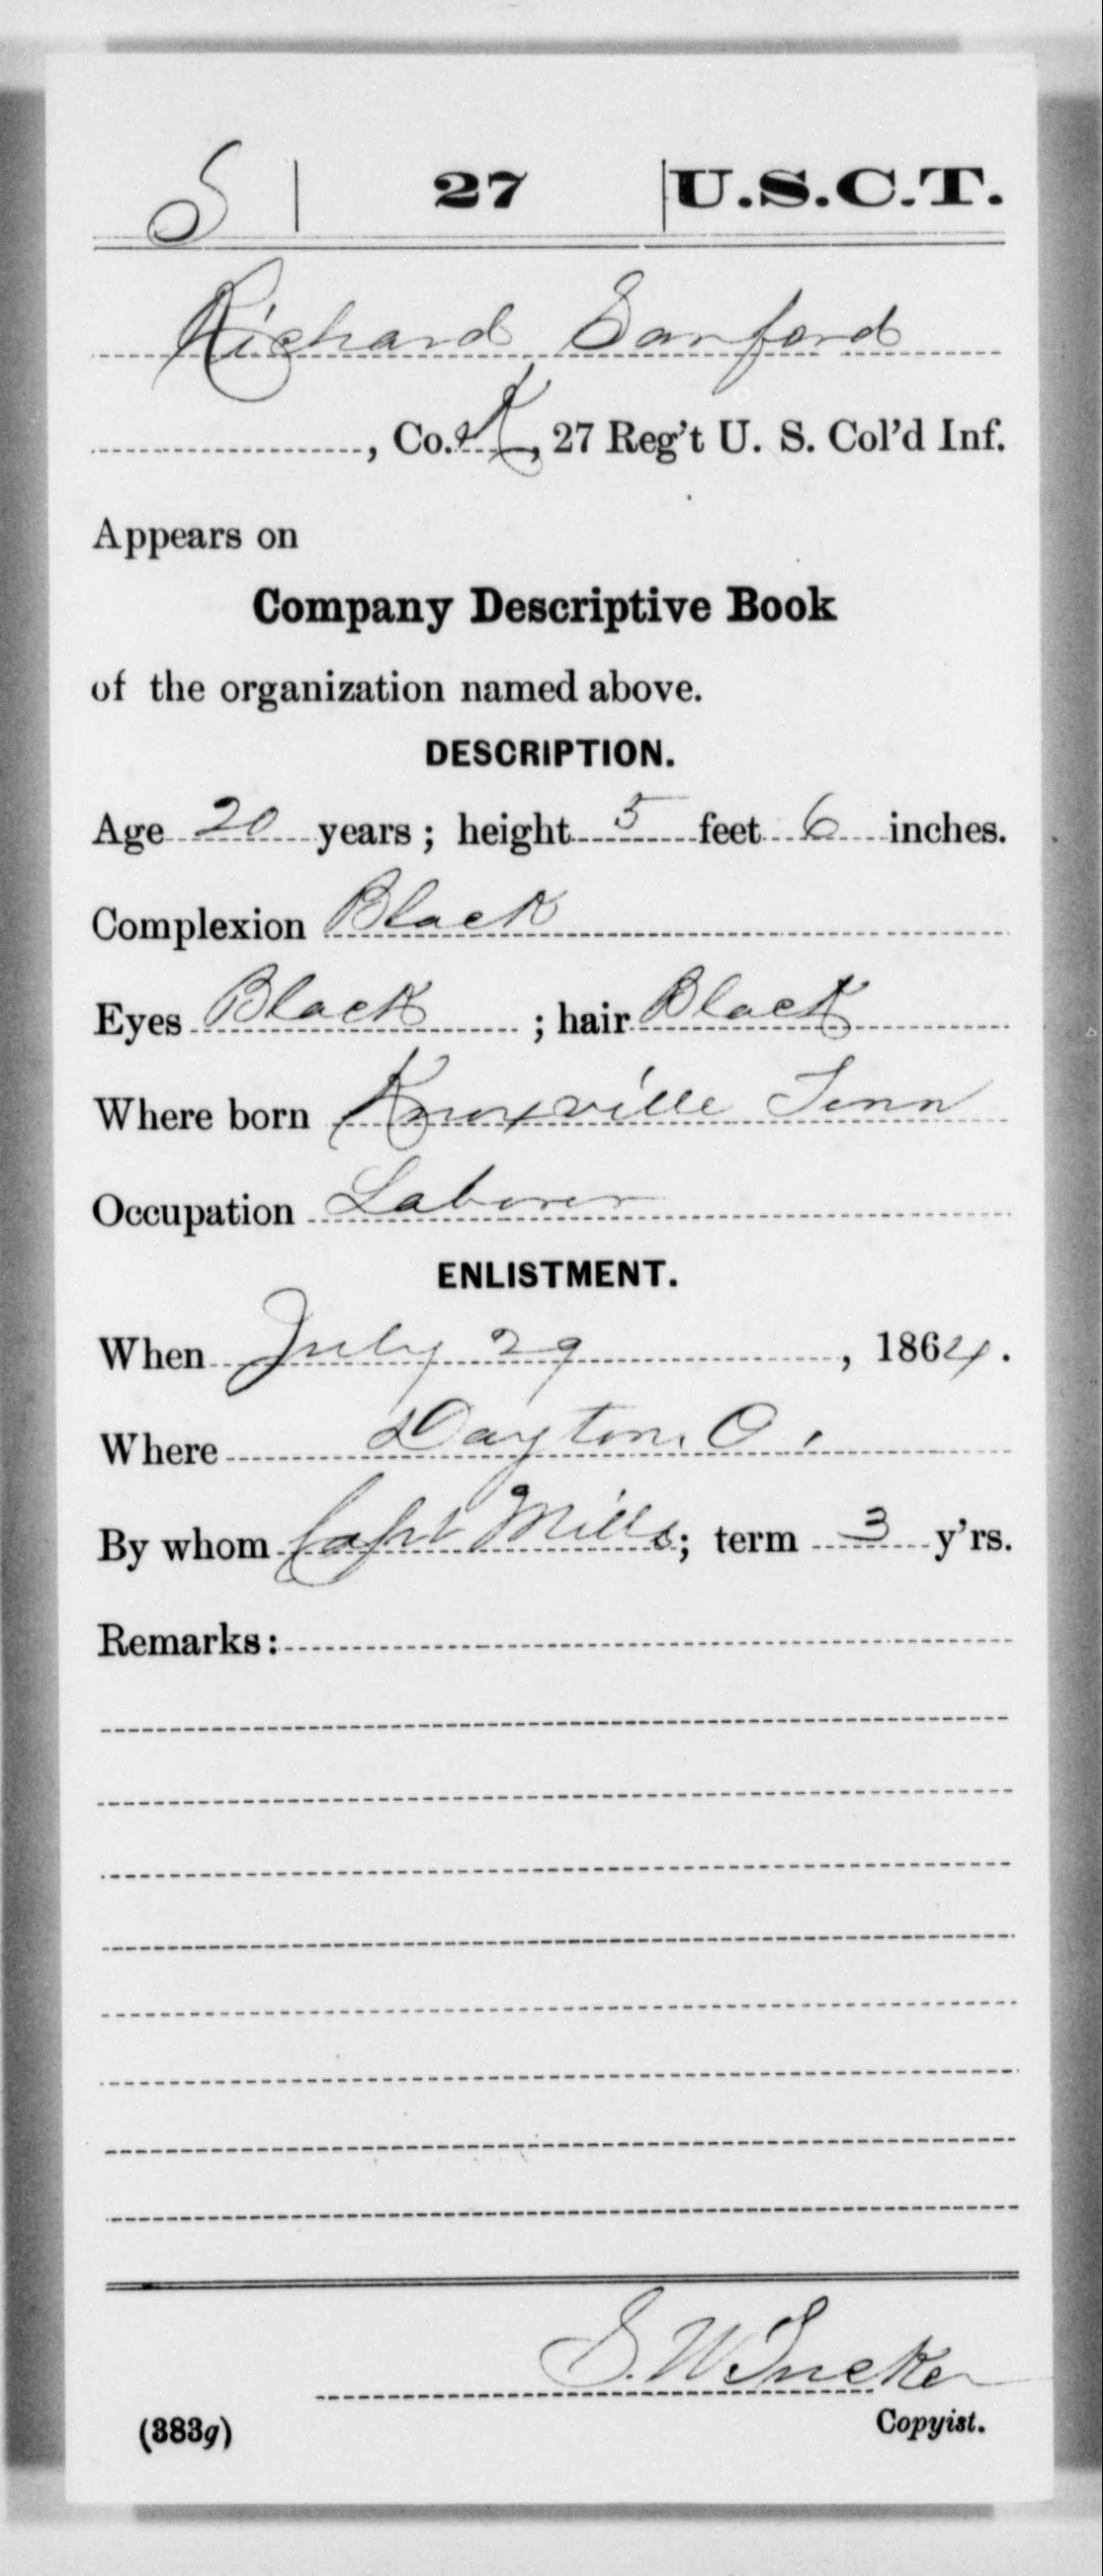 S | 27 | U.S.C.T.
Richard Sanford
, Co. K, 27 Reg't U. S. Col'd Inf.
Appears on
Company Descriptive Book
of the organization named above.
DESCRIPTION.
Age 20 years; height 5 feet 6 inches.
Complexion Black
Eyes Black; hair Black
Where born Knoxville Tenn
Occupation Laborer
ENLISTMENT.
When July 29, 1864.
Where Dayton, O.
By whom Capt Mills; term 3 y'rs.
Remarks:
S. W. Tucker
Copyist.
(383g)